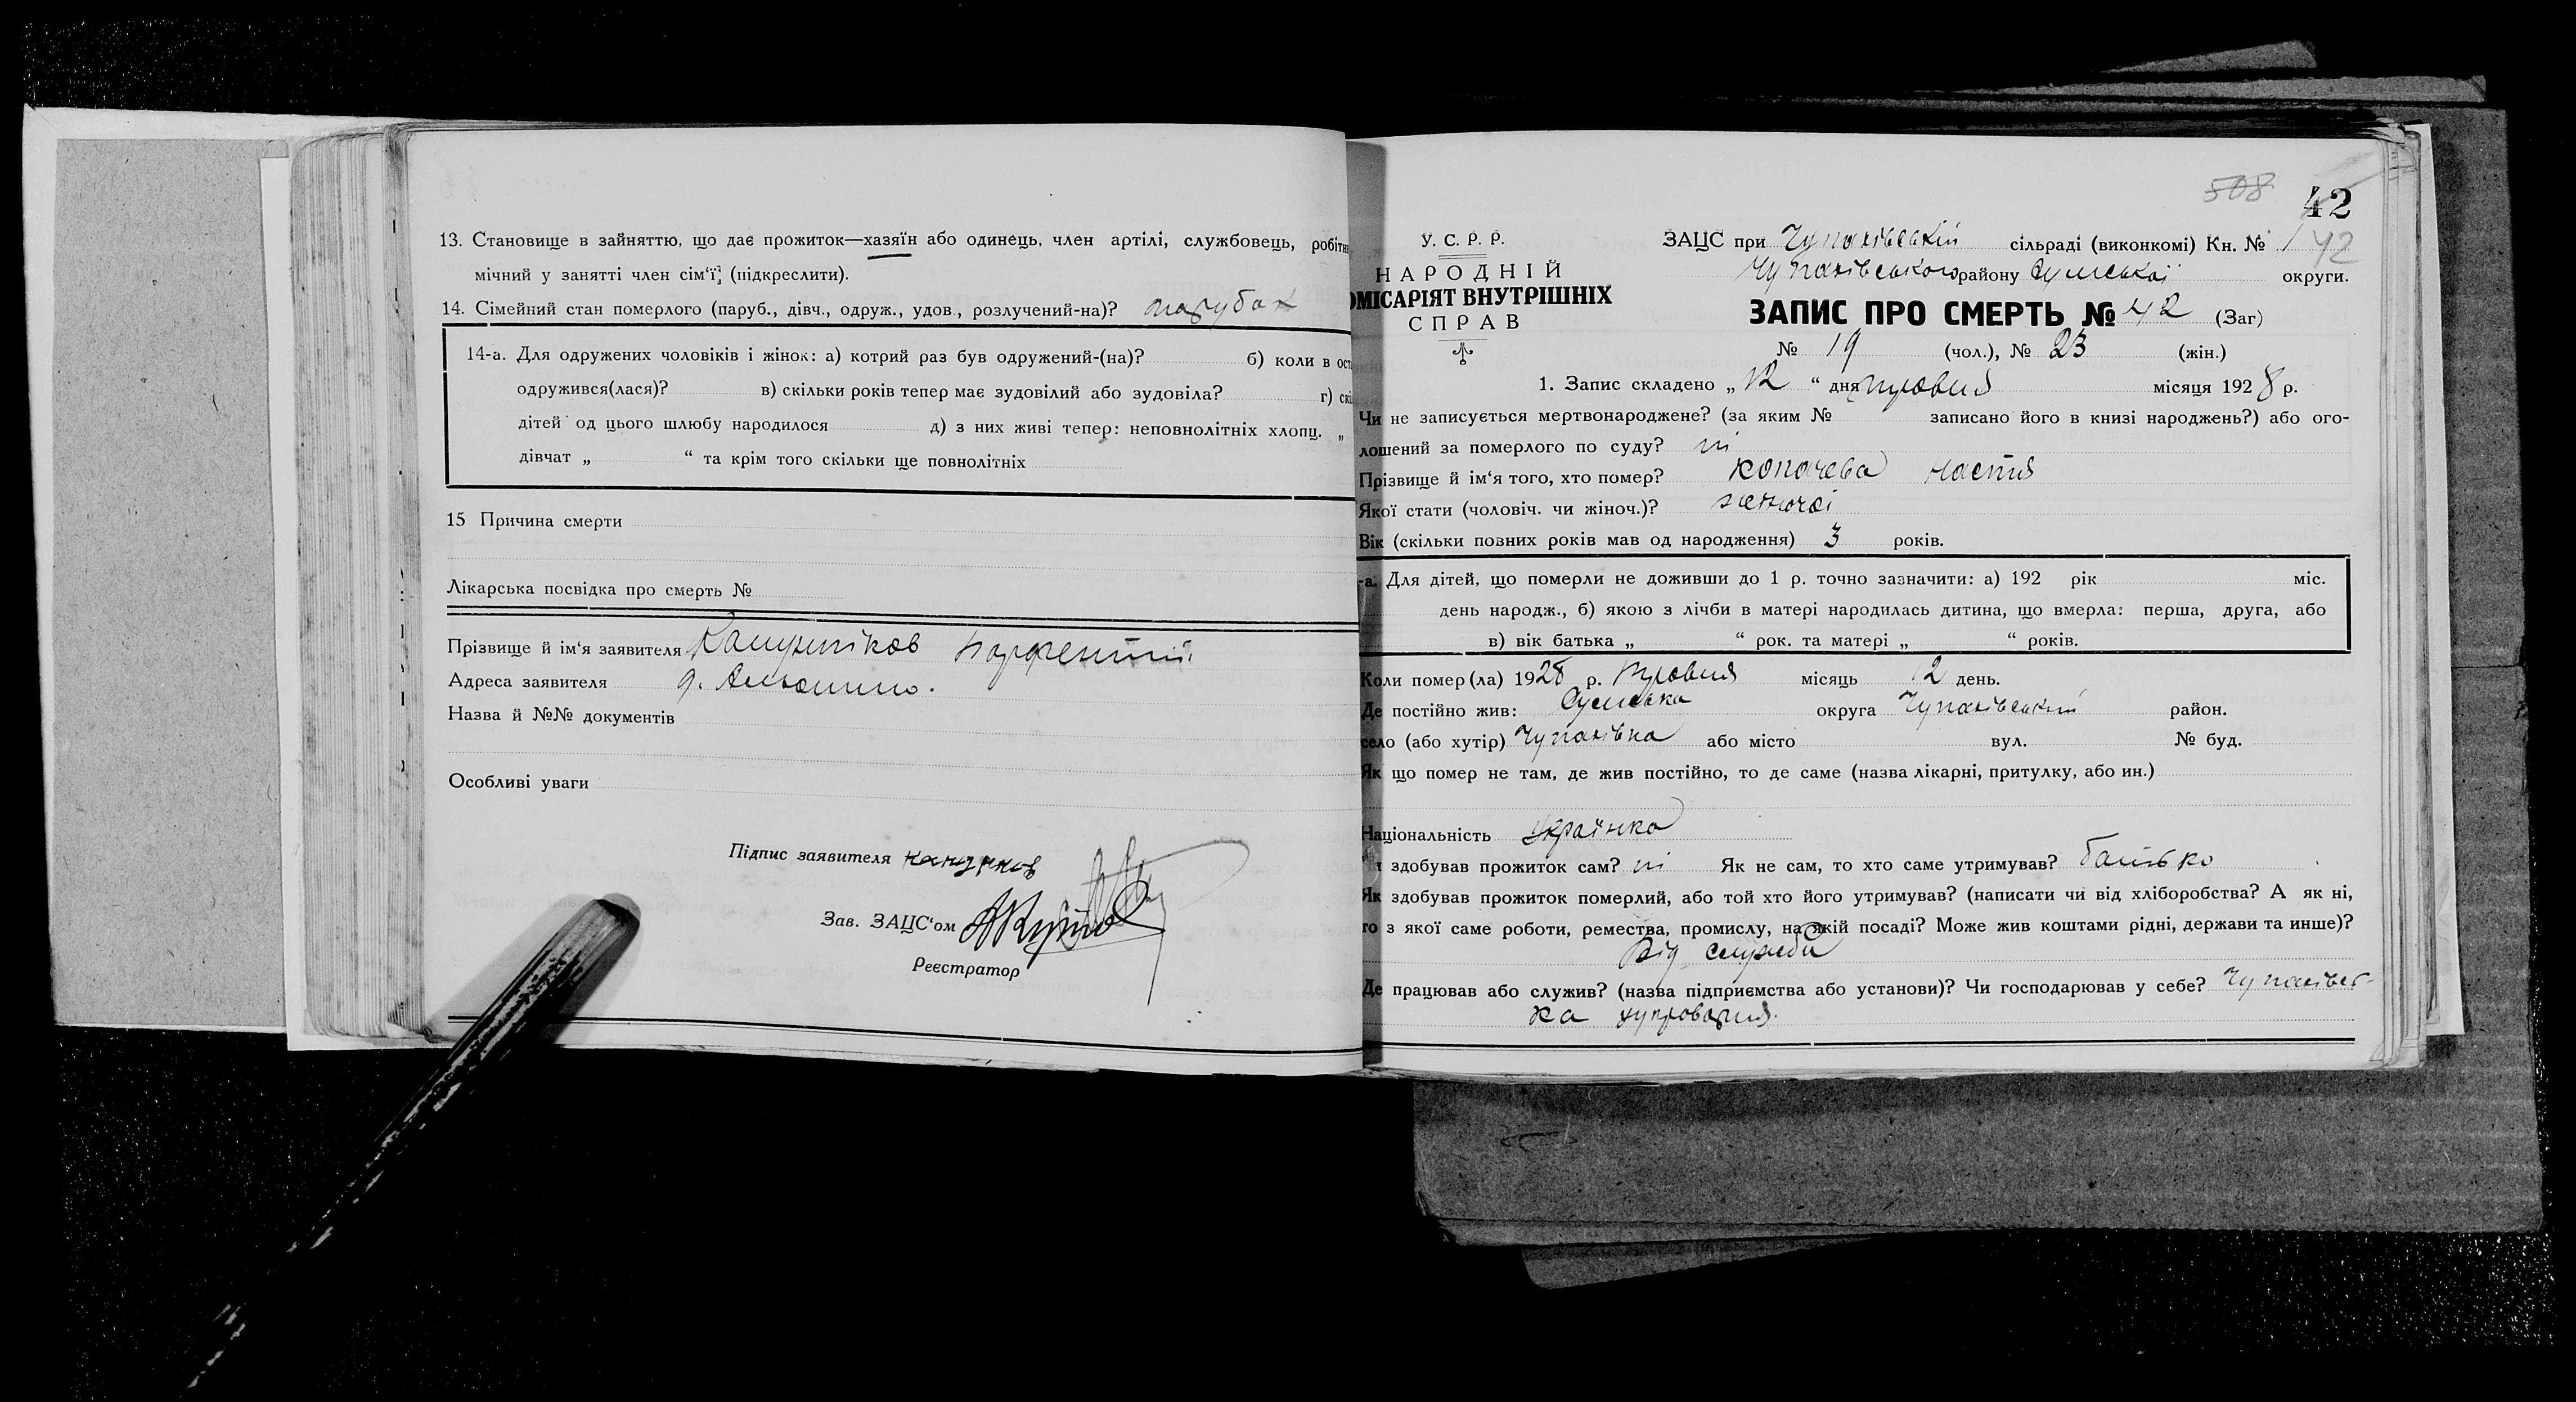 13. Становище в зайняттю, що дає прожиток—хазяїн або одинець, член артілі, службовець, робітн
мічний у занятті член сім'ї; (підкреслити).
14. Сімейний стан померлого (паруб., дівч., одруж., удов., розлучений-на)? парубок
14-а. Для одружених чоловіків і жінок: а) котрий раз був одружений-(на)? б) коли в ост
одружився(лася)? в) скільки років тепер має зудовілий або зудовіла? г) скі
дітей од цього шлюбу народилося д) з них живі тепер: неповнолітніх хлопц. „
дівчат „ “ та крім того скільки ще повнолітніх
15 Причина смерти
Лікарська посвідка про смерть №
Прізвище й ім'я заявителя Парфентий
Адреса заявителя
Назва й №№ документів
Особливі уваги
Підпис заявителя
Зав. ЗАЦС'ом
Реєстратор
508 42
У. С. Р. Р.
НАРОДНІЙ
ОМІСАРІЯТ ВНУТРІШНІХ
СПРАВ
ЗАЦС при Чупахівській сільраді (виконкомі) Кн. № 1 42
Чупахівського району Сумської округи.
ЗАПИС ПРО СМЕРТЬ № 42 (Заг)
№ 19 (чол.), № 23 (жін.)
1. Запис складено „ 12 “ дня травня місяця 1928 р.
Чи не записується мертвонароджене? (за яким № записано його в книзі народжень?) або ого-
лошений за померлого по суду? ні
Прізвище й ім'я того, хто помер? Копачева Настя
Якої стати (чоловіч. чи жіноч.)? жіночої
Вік (скільки повних років мав од народження) 3 років.
-а. Для дітей, що померли не доживши до 1 р. точно зазначити: а) 192 рік міс.
день народж., б) якою з лічби в матері народилась дитина, що вмерла: перша, друга, або
в) вік батька „ “ рок. та матері „ “ років.
Коли помер(ла) 1928 р. Травня місяць 12 день.
Де постійно жив: Сумська округа Чупахівський район.
село (або хутір) Чупахівка або місто вул. № буд.
Як що помер не там, де жив постійно, то де саме (назва лікарні, притулку, або ин.)
Національність українка
здобував прожиток сам? ні Як не сам, то хто саме утримував? батько
Як здобував прожиток померлий, або той хто його утримував? (написати чи від хліборобства? А як ні,
то з якої саме роботи, ремества, промислу, на якій посаді? Може жив коштами рідні, держави та инше)?
Від служби
Де працював або служив? (назва підприємства або установи)? Чи господарював у себе? Чупахівсь-
ка цукроварня.